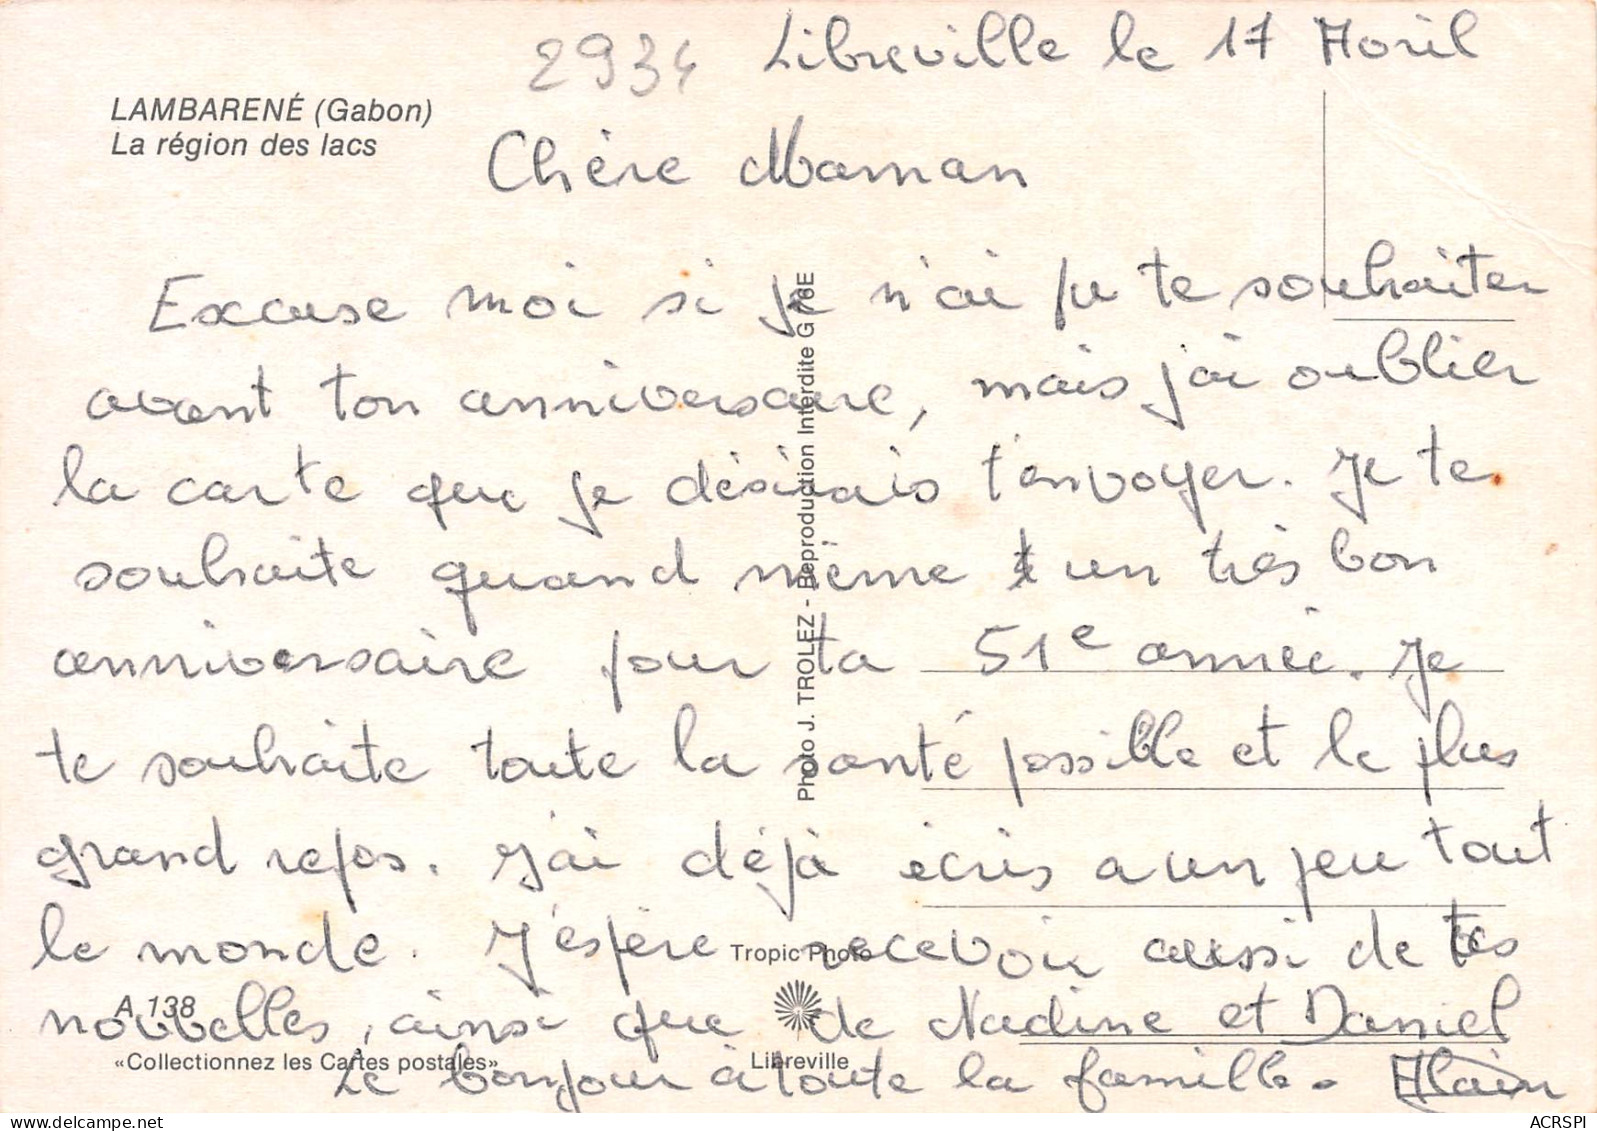 2934 Libreville le 17 Avril
LAMBARENÉ (Gabon)
La région des lacs
Chère Maman
Excuse moi si je n'ai pu te souhaiter
avant ton anniversaire, mais j'ai oublier
la carte que je désirais t'envoyer. Je te
souhaite quand même un très bon
anniversaire pour ta 51e année. Je
te souhaite toute la santé possible et le plus
grand repos. J'ai déjà écris a un peu tout
le monde. J'éspère recevoir aussi de tes
nouvelles, ainsi que de Nadine et Daniel
Le bonjour à toute la famille. Alain
Photo J. TROLEZ - Reproduction Interdite G 76E
Tropic Photo
A 138
«Collectionnez les Cartes postales»
Libreville
delcampe.net
ACRSPI